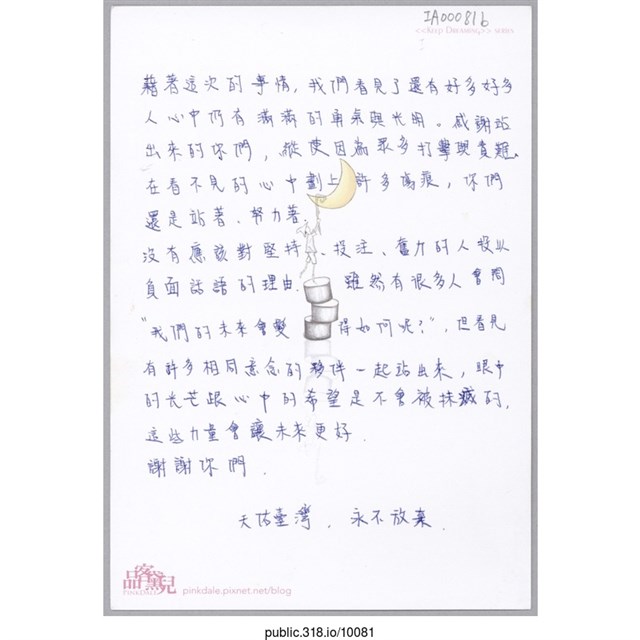 IA000816
<<KEEP DREAMING>> SERIES
藉著這次的事情，我們看見了還有好多好多
人心中仍有滿滿的勇氣與光明。感謝站
出來的你們，縱使因為眾多打擊與責難、
在看不見的心中劃上許多傷痕，你們
還是站著、努力著.
沒有應該對堅持、投注、奮力的人投以
負面話語的理由. 雖然有很多人會問
"我們的未來會變得如何呢？"，但看見
有許多相同意念的夥伴一起站出來，眼中
的光芒跟心中的希望是不會被抹滅的，
這些力量會讓未來更好.
謝謝你們.
天佑臺灣，永不放棄.
品客黛兒
PINKDALE pinkdale.pixnet.net/blog
public.318.io/10081